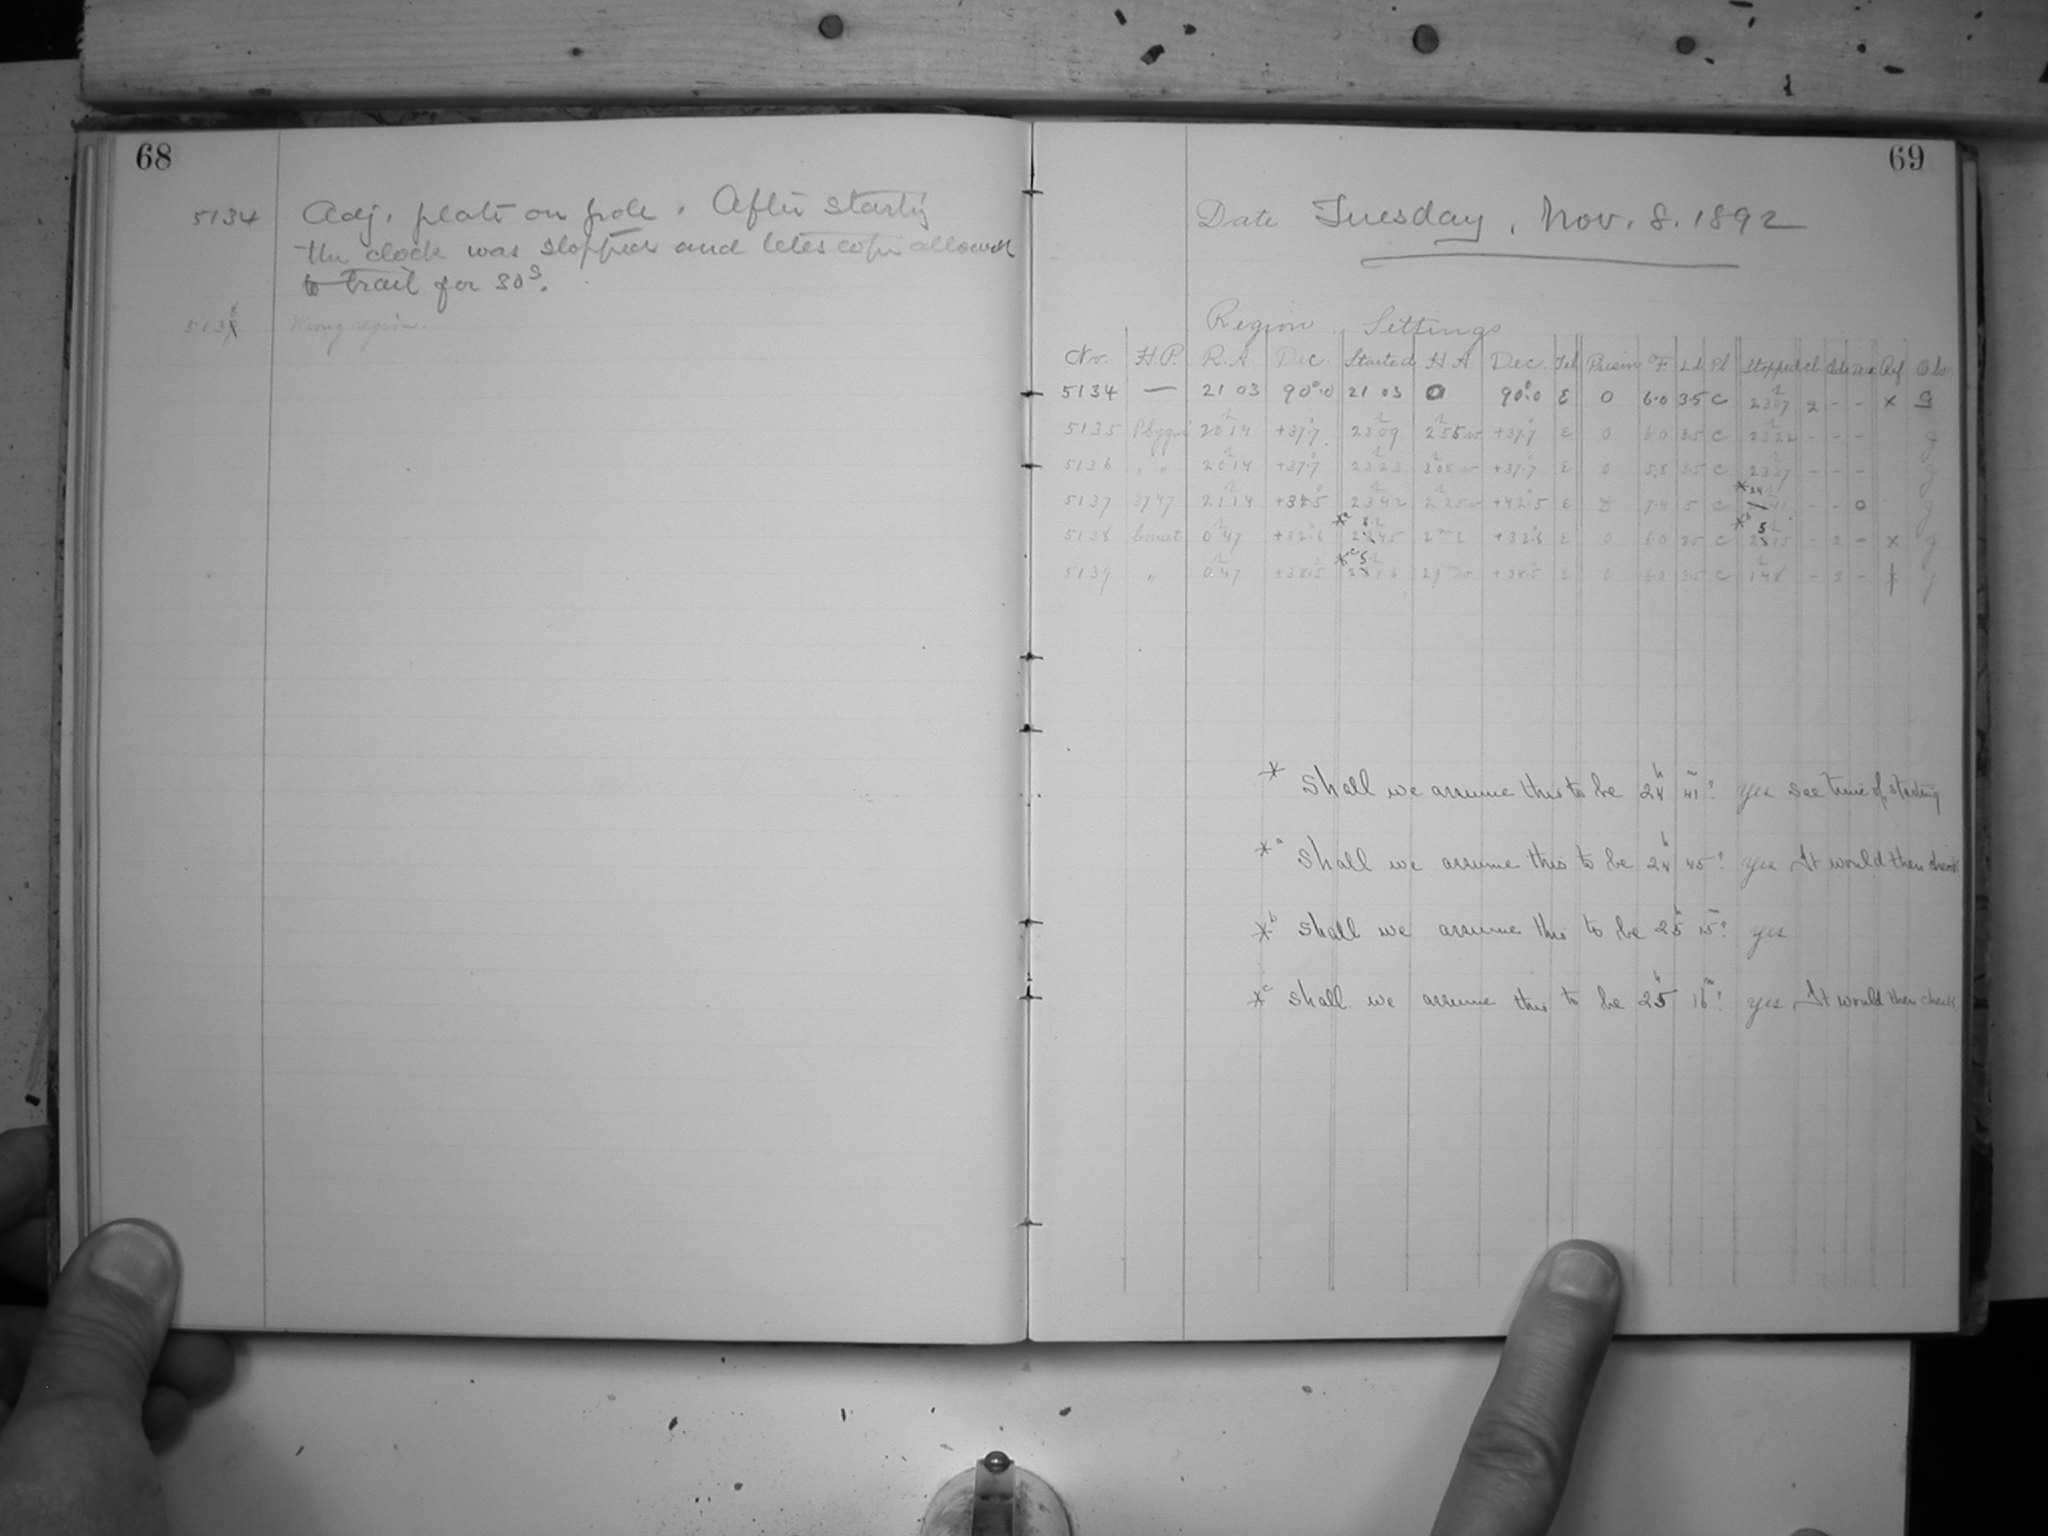 68
5134 Adj. plate on pole. After starting
the clock was stopped and telescope allowed
to trail for 30s.
5138 Wrong region.
69
Date Tuesday, Nov. 8. 1892
Region Settings
No. H.P. R.A Dec. Started H.A Dec. Tel Prism F. Pl Stopped Ref Obs
5134 — 21 03 90°.0 21 03 0 90°.0 E 0 6.0 35 C 2307 2 - - x G
5135 P Cygni 20 14 +37°.7 23 09 2 55 w +37.7 E 0 6.0 35 C 2322 - - - g
5136 " " 20 14 +37°.7 23 23 3 08 w +37°.7 E 0 5.8 35 C 2337 - - - g
5137 3747 21 14 23 42 2 25 w +42°.5 E 7.4 5 C * 2441 - - 0 g
5138 Comet 0 47 +32°.6 *a 2445 +32°.6 E 0 6.0 35 C *b 2515 - 2 - x g
5139 " 0 47 +38°.5 *c 2516 29 w +38°.5 E 0 6.0 35 C 1 48 - 2 - x g
* Shall we assume this to be 24h 41m? yes see time of starting
*a Shall we assume this to be 24h 45? yes It would then check
*b Shall we assume this to be 25h 15m? yes
*c Shall we assume this to be 25h 16m? yes It would then check